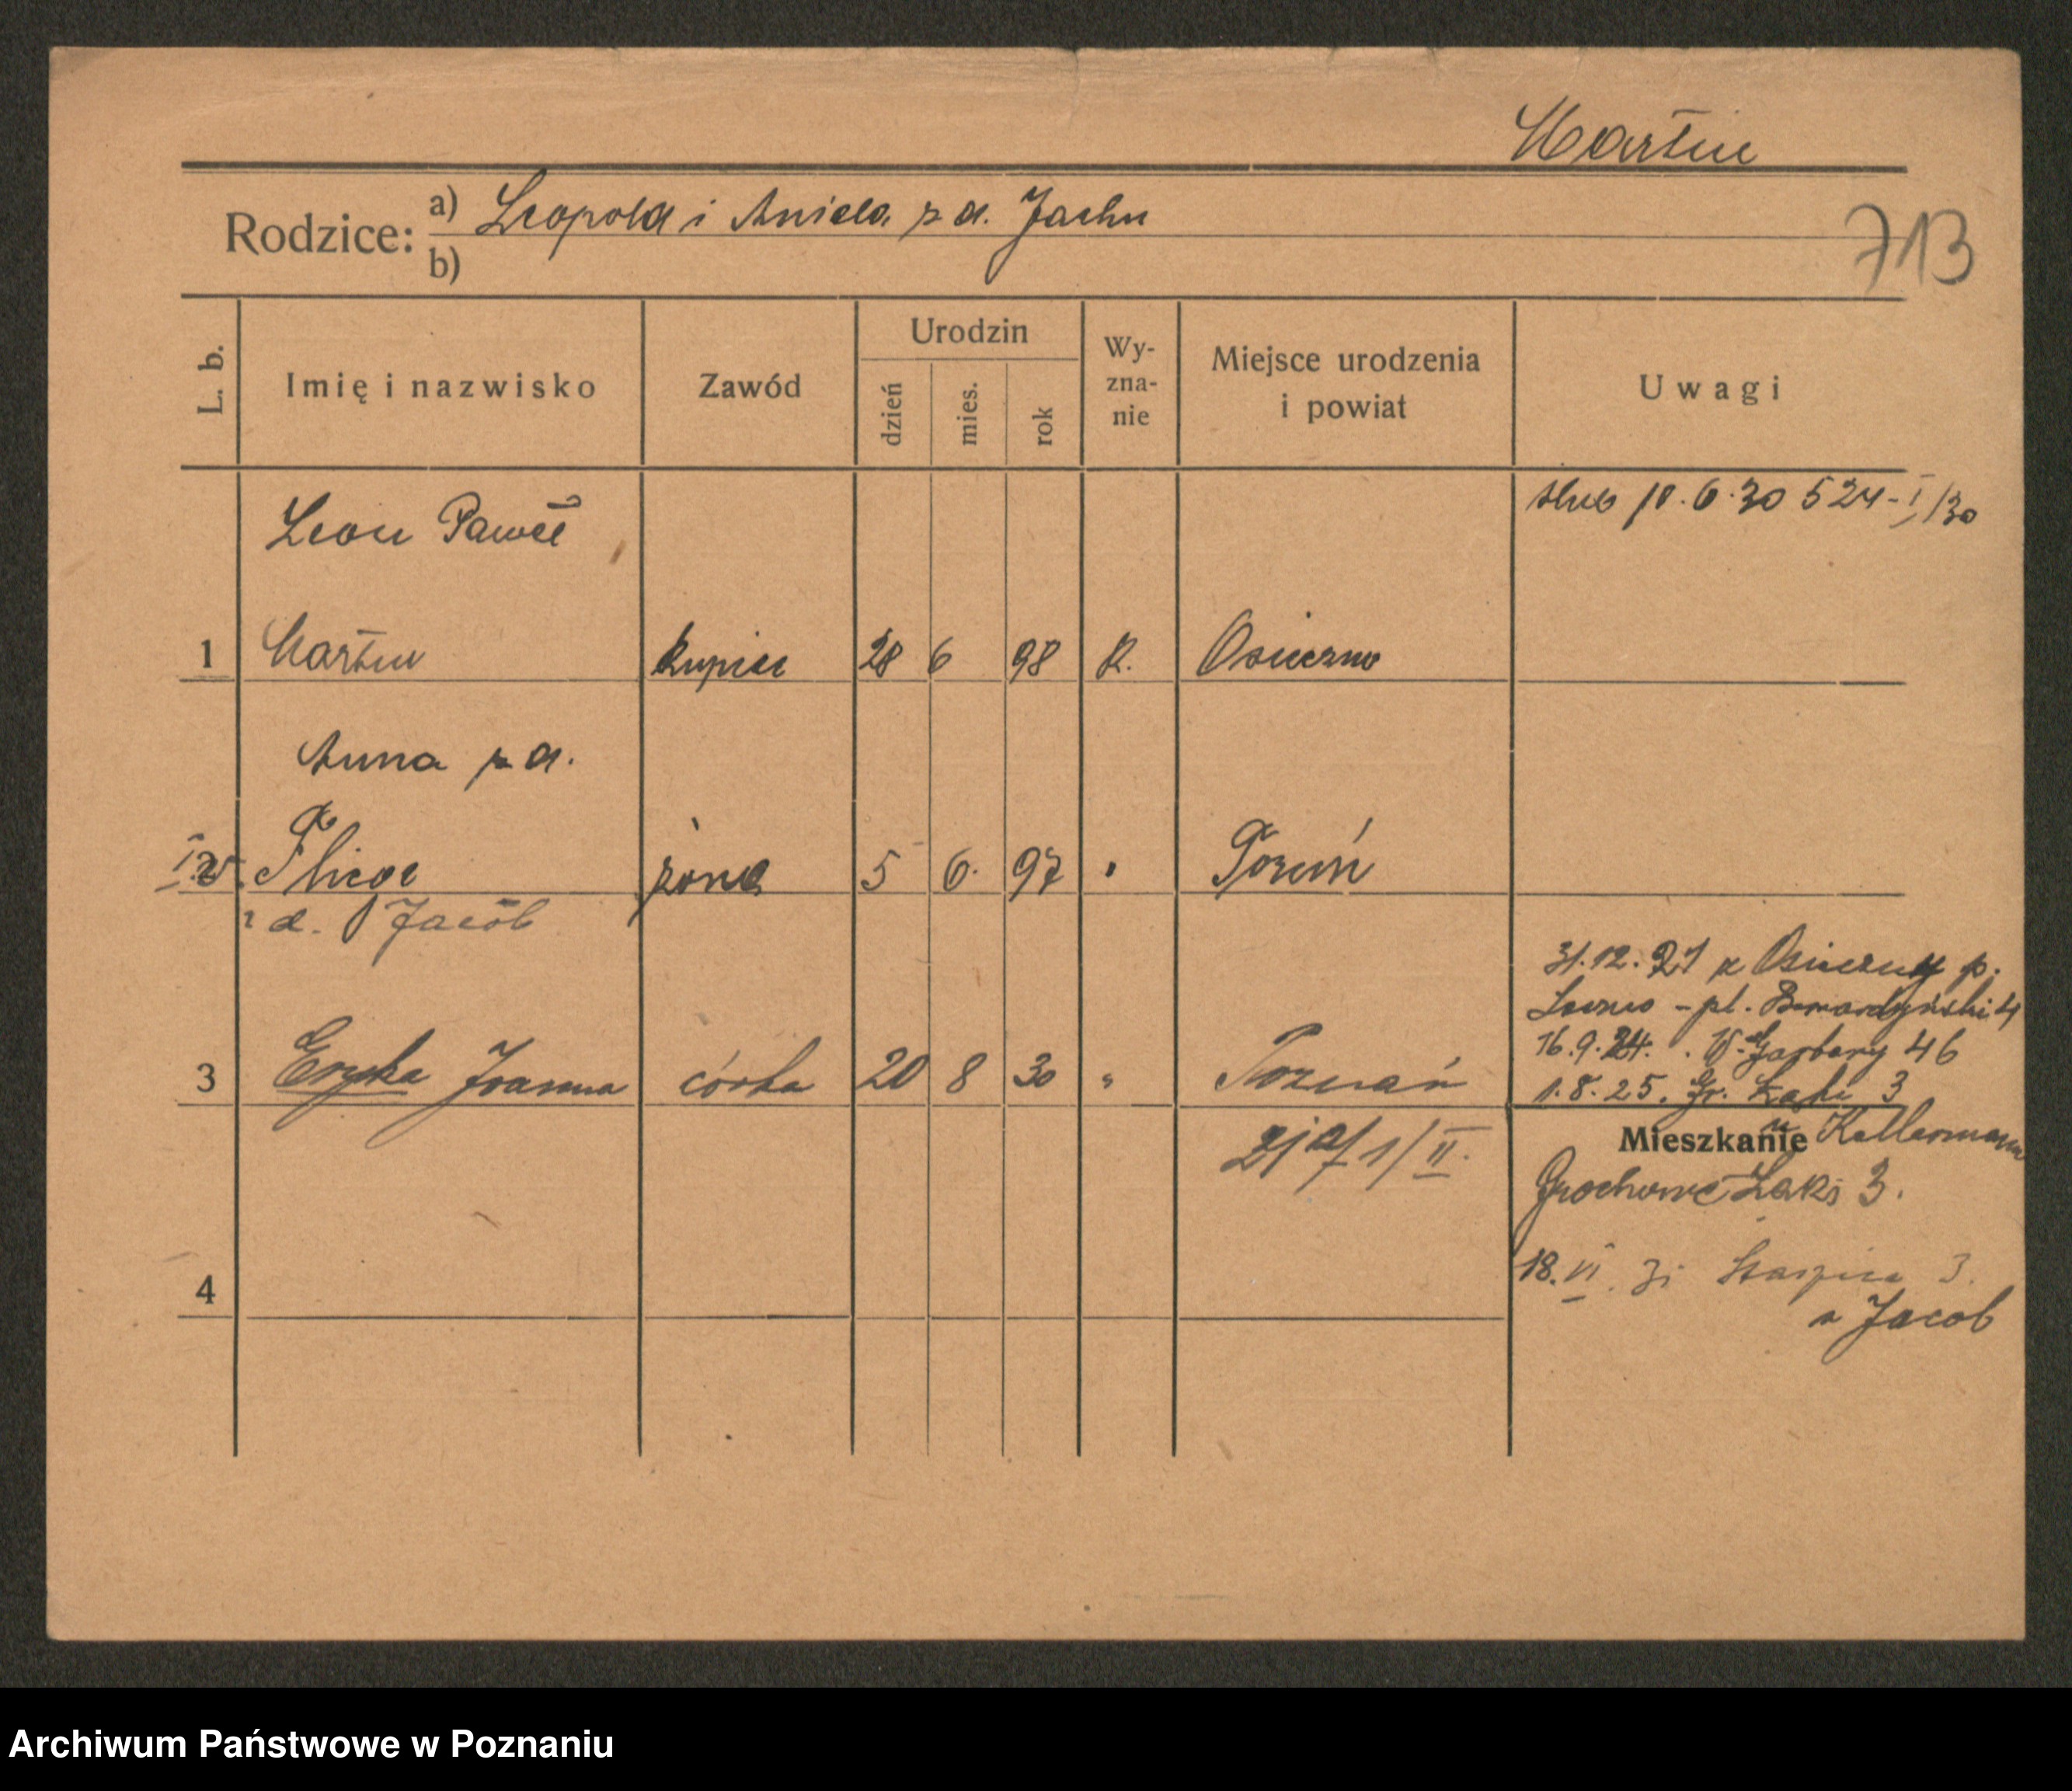 Martin
Rodzice: a) Leopold i Aniela z d. Jachn
b)
713
L. b.
Imię i nazwisko
Zawód
Urodzin
dzień
mies.
rok
Wy-
zna-
nie
Miejsce urodzenia
i powiat
Uwagi
Leon Paweł
ślub 10.6.30 524-I/30
1 Martin kupiec 28 6 98 R. Osieczno
Anna z d.
2 żona 5 6. 97 "
z d. Jacob
3 Eryka Joanna córka 20 8 30 " Poznań
31.12.21 z Osieczny p.
Leszno - pl. Bernardyński 4
16.9.24. W. Garbary 46
1.8.25. Gr. Łąki 3
Mieszkanie
u Kellermann
Grochowe Łąki 3.
4
18.VI.31 Staszica 3.
u Jacob
Archiwum Państwowe w Poznaniu